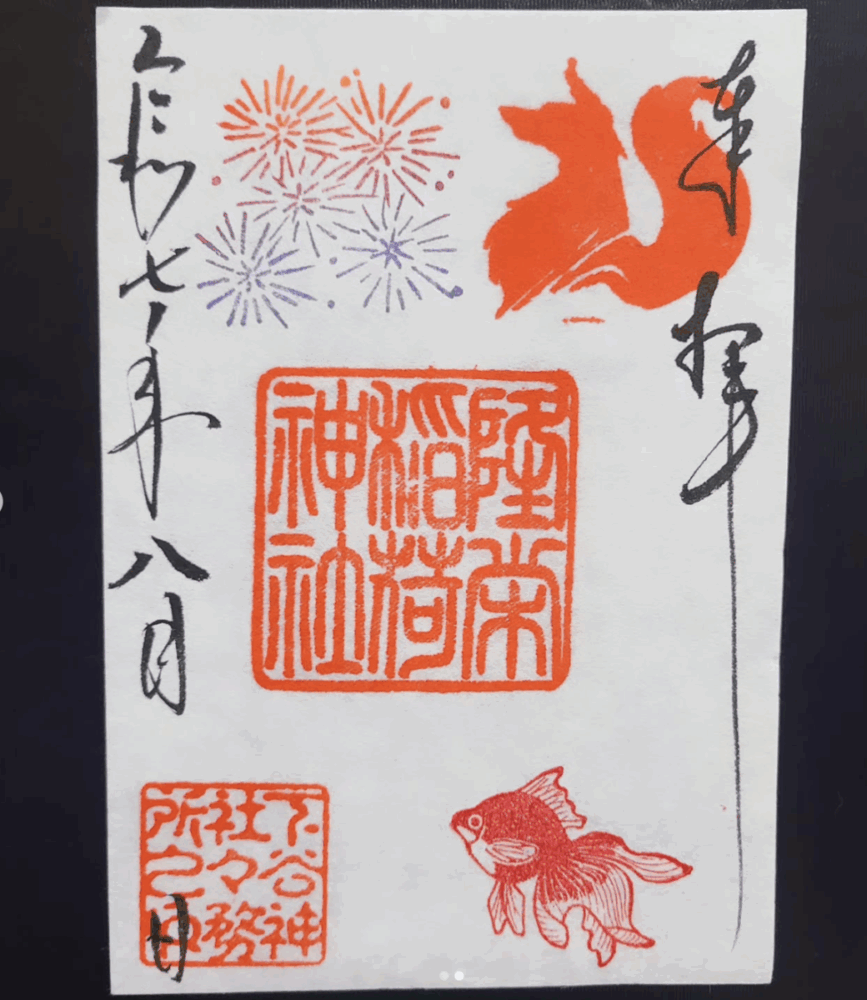 奉拝
隆栄
稲荷
神社
令和七年八月日
下谷神
社々務
所之印